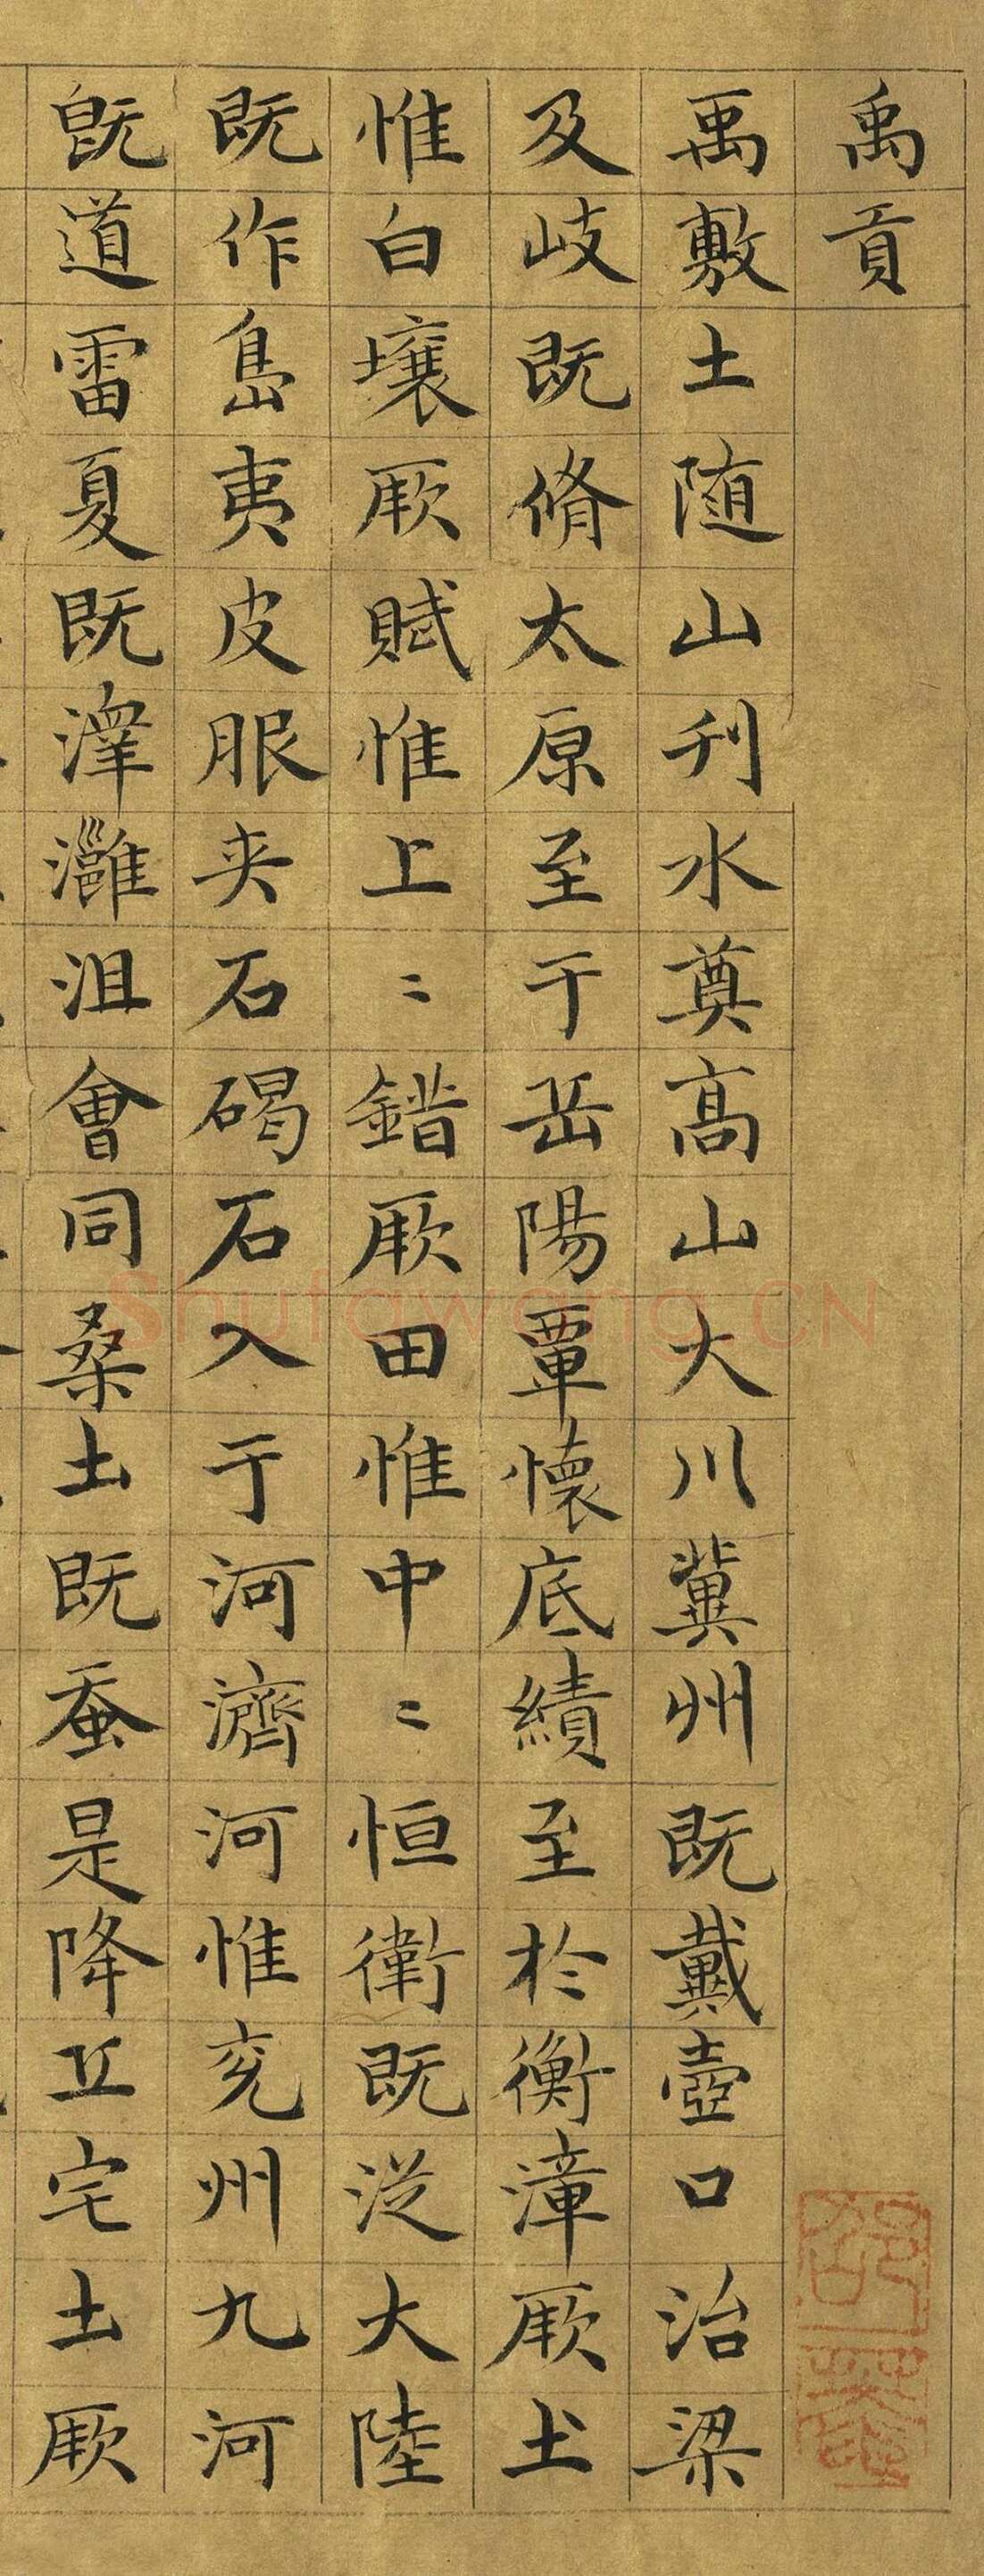 禹貢
禹敷土随山刋水奠高山大川冀州既戴壺口治梁
及岐既脩太原至于岳陽覃懷底績至於衡漳厥土
惟白壤厥賦惟上〻錯厥田惟中〻恒衛既従大陸
既作島夷皮服夾石碣石入于河濟河惟兖州九河
既道雷夏既澤灉沮會同桑土既蚕是降丘宅土厥
Shufawang.CN